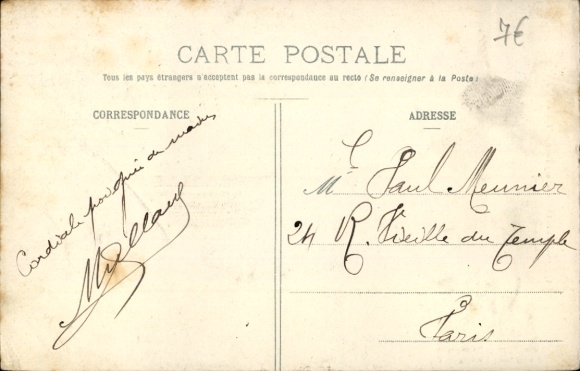 7€
CARTE POSTALE
Tous les pays étrangers n'acceptent pas la correspondance au recto (Se renseigner à la Poste)
CORRESPONDANCE
Cordiale poignée de mains
ADRESSE
Mr Paul Meunier
24 R. Vieille du Temple
Paris